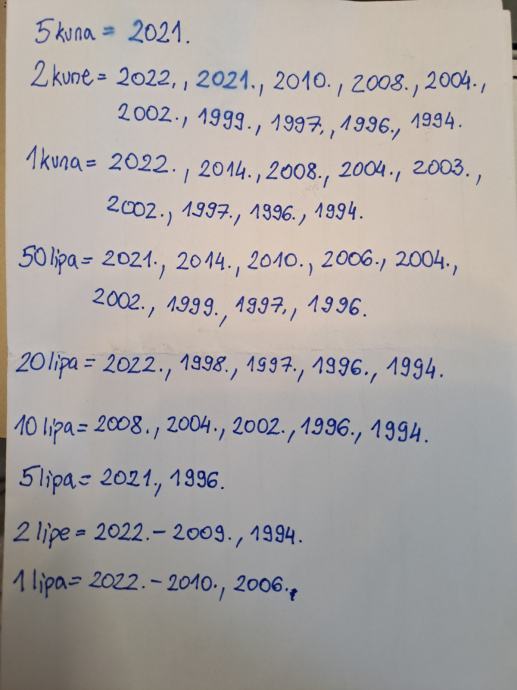 5 kuna = 2021.
2 kune = 2022., 2021., 2010., 2008., 2004.,
2002., 1999., 1997., 1996., 1994.
1 kuna = 2022., 2014., 2008., 2004., 2003.,
2002., 1997., 1996., 1994.
50 lipa = 2021., 2014., 2010., 2006., 2004.,
2002., 1999., 1997., 1996.
20 lipa = 2022., 1998., 1997., 1996., 1994.
10 lipa = 2008., 2004., 2002., 1996., 1994.
5 lipa = 2021., 1996.
2 lipe = 2022.-2009., 1994.
1 lipa = 2022.-2010., 2006.,